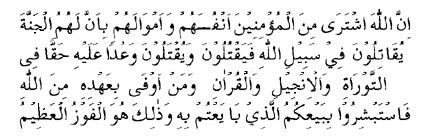 اِنَّ اللهَ اشْتَرَى مِنَ الْمُؤْمِنِينَ اَنْفُسَهُمْ وَاَمْوَالَهُمْ بِاَنَّ لَهُمُ الْجَنَّةَ
يُقَاتِلُونَ فِي سَبِيلِ اللهِ فَيَقْتُلُونَ وَيُقْتَلُونَ وَعْدًا عَلَيْهِ حَقًّا فِي
التَّوْرَاةِ وَالْاِنْجِيلِ وَالْقُرْاٰنِ وَمَنْ اَوْفٰى بِعَهْدِهِ مِنَ اللهِ
فَاسْتَبْشِرُوا بِبَيْعِكُمُ الَّذِي بَايَعْتُمْ بِهِ وَذٰلِكَ هُوَ الْفَوْزُ الْعَظِيمُ